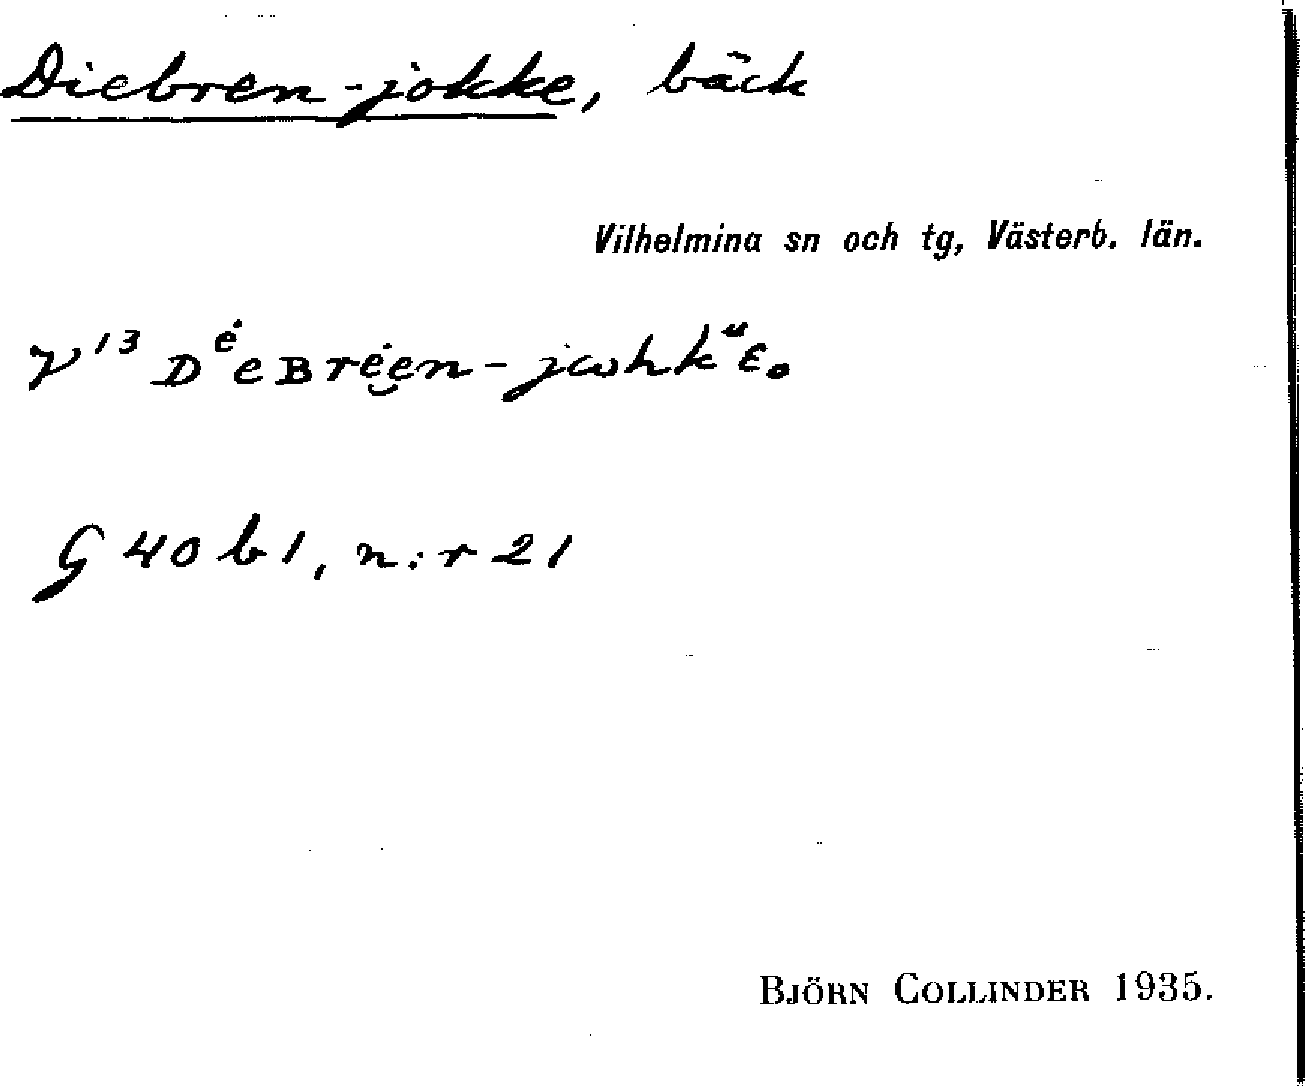 Diebren-jokke, bäck
Vilhelmina sn och tg, Västerb. län.
V¹³ Dᵉ̇eBrėen-jωhkᵘ̈ε.
G 40 b 1, n:r 21
BJÖRN COLLINDER 1935.